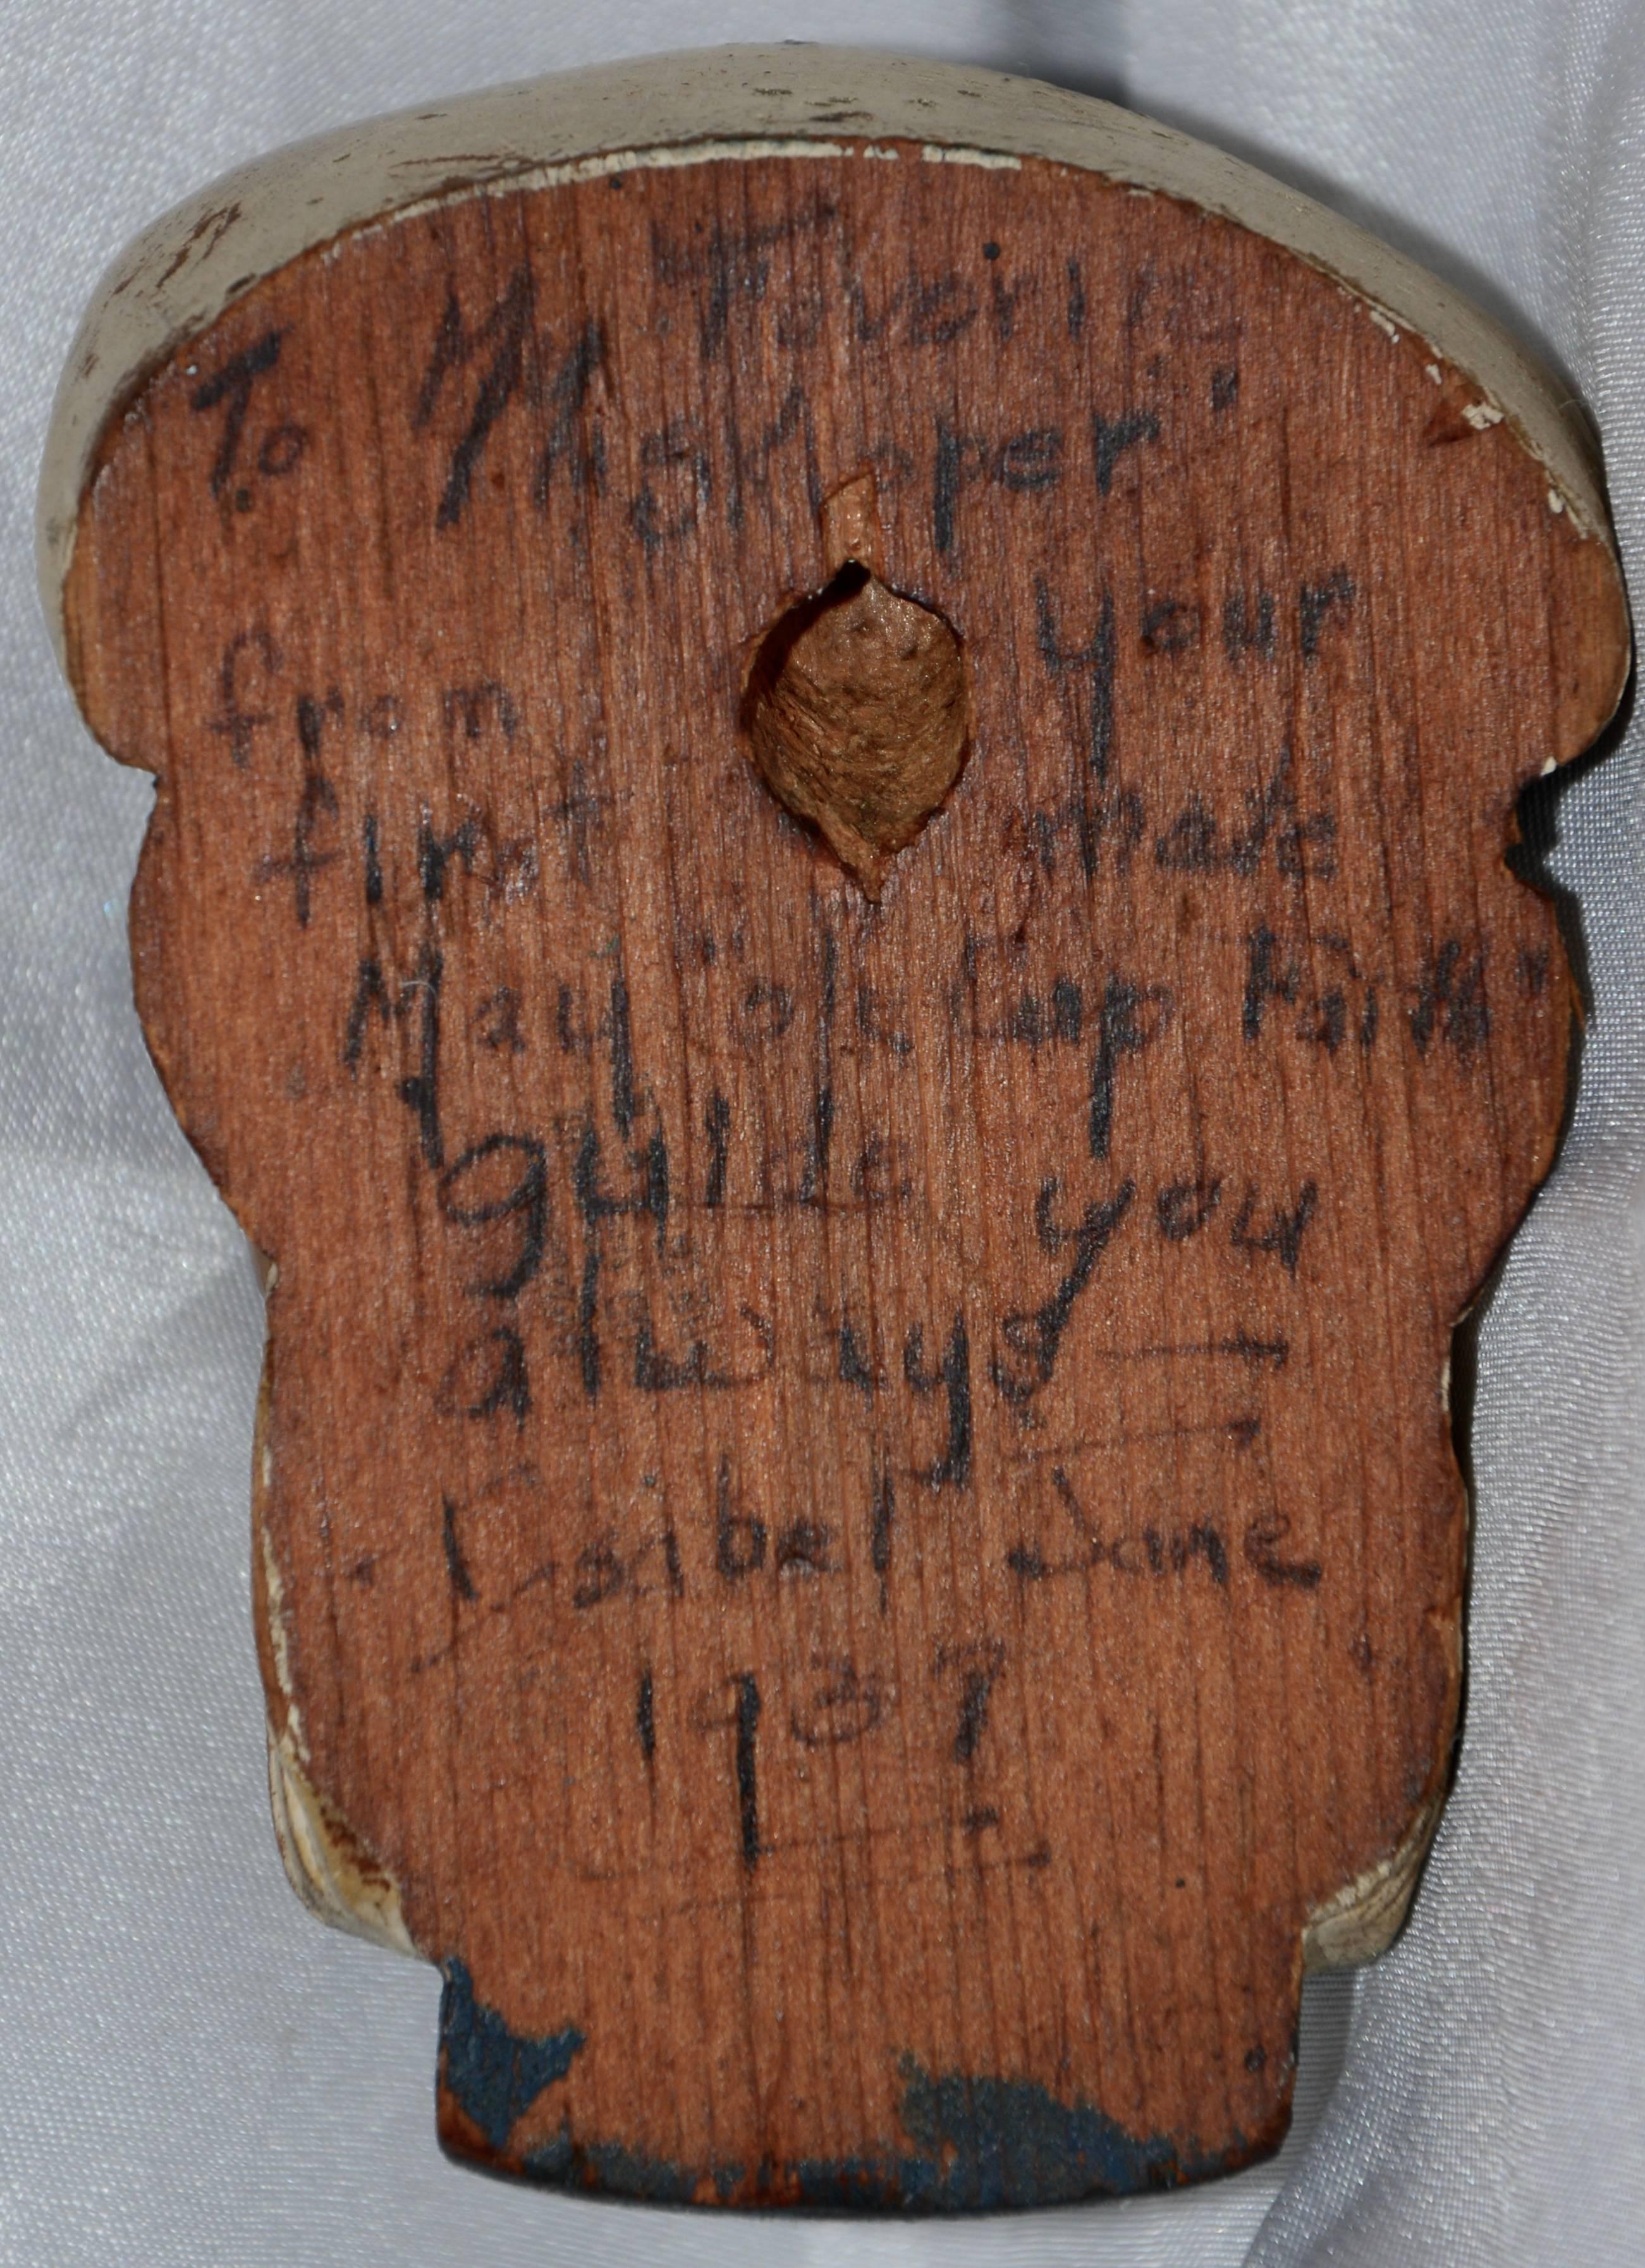 To My Favorite
"Skipper"
from your
first mate
May "ole Cap Faith"
guide you
always
Isibel Jane
1937